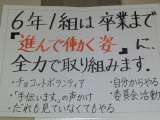 6年1組は卒業まで
『進んで働く姿』に、
全力で取り組みます。
・チョコットボランティア ・自分からやる
・「手伝います。」の声かけ ・委員会活動
・だれも見ていなくてもやる